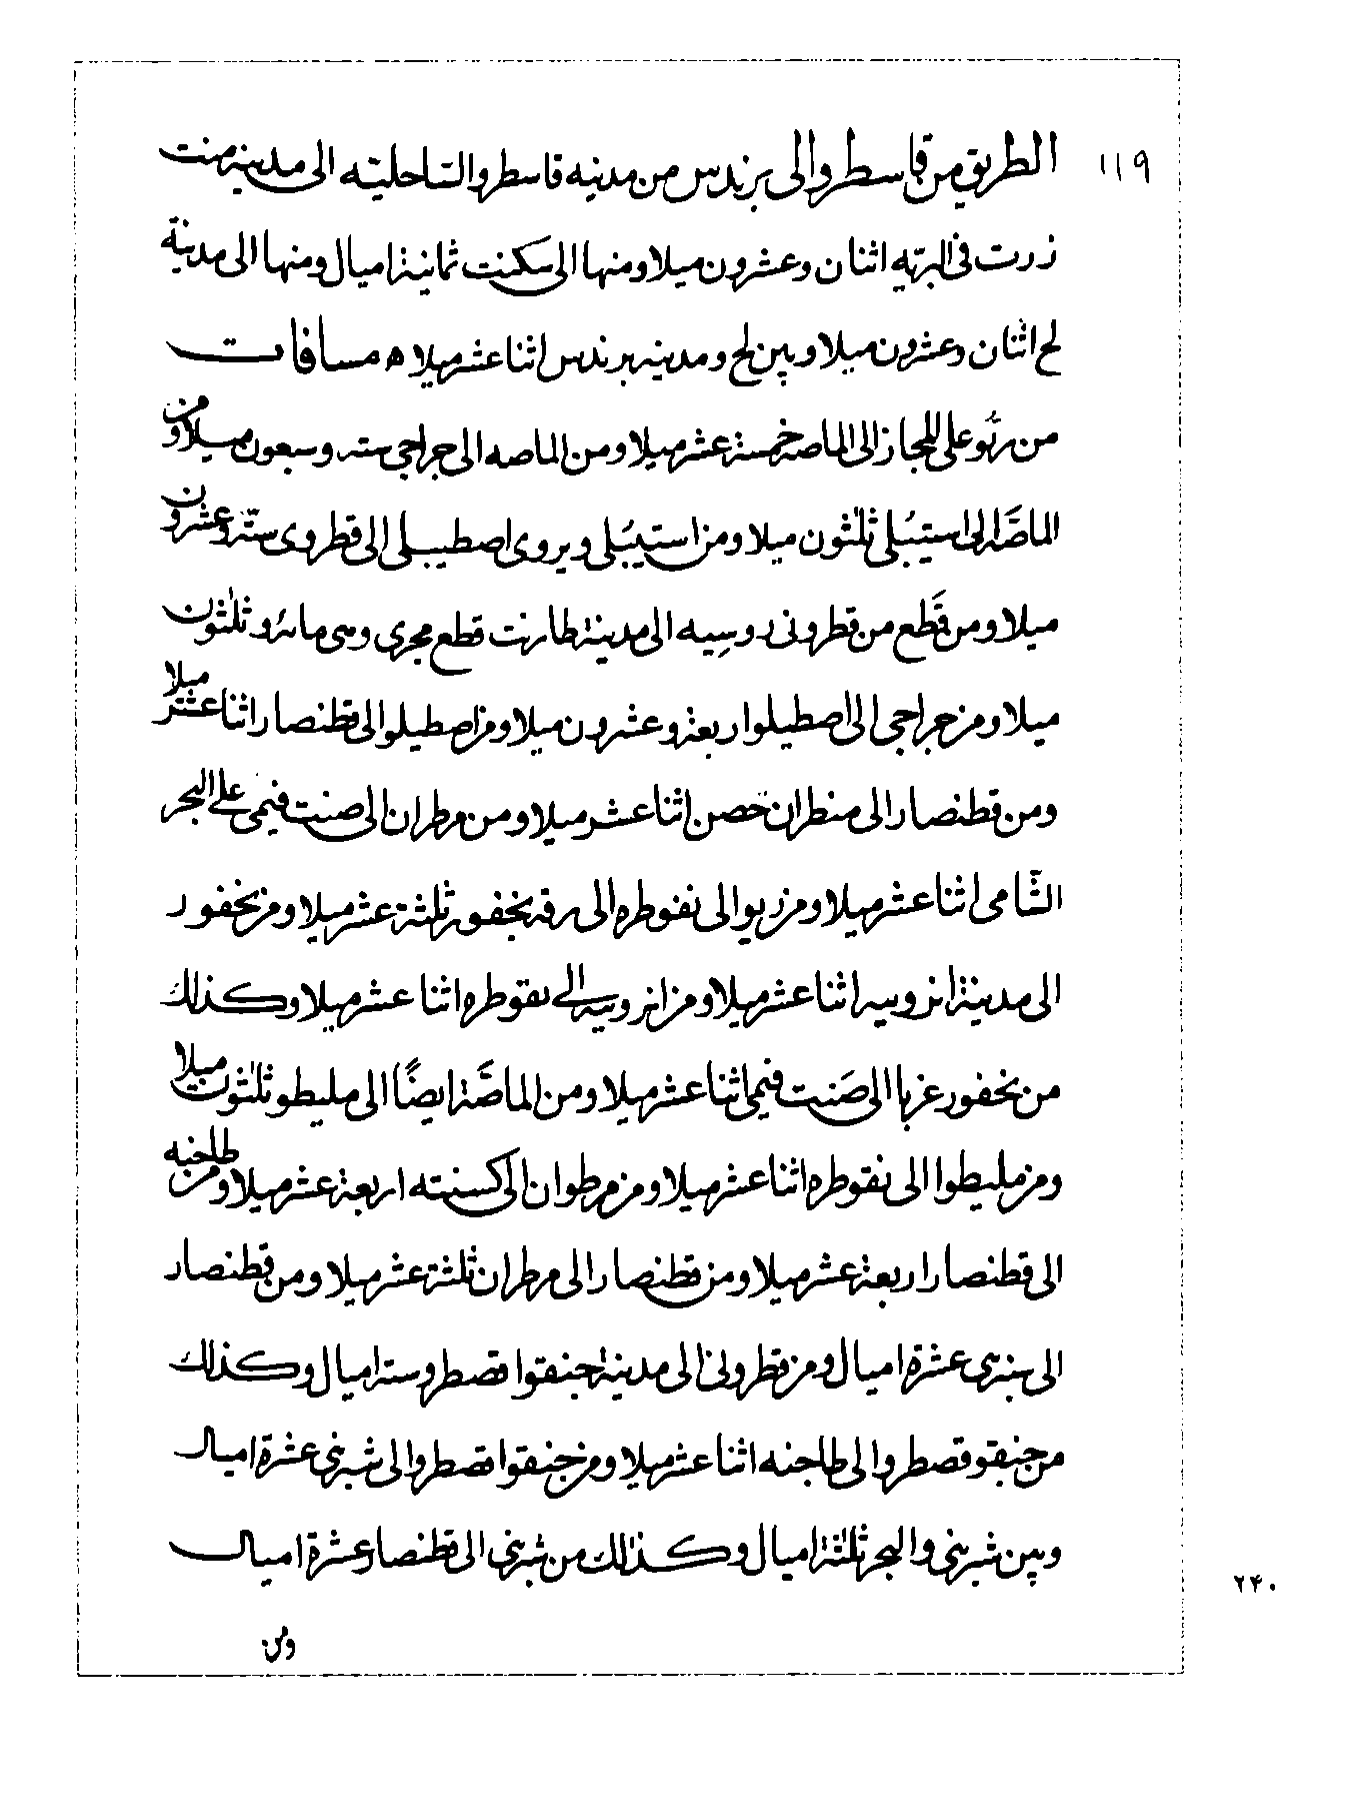 ١١٩
الطريق من قاسطروالى برندس من مدينه قاسطروالساحليه الى مدينة منت
زرت فى البريه اثنان وعشرون ميلا ومنها الى سكنت ثمانية اميال ومنها الى مدينة
لج اثنان وعشرون ميلا وبين لج ومدينه برندس اثنا عشر ميلا ه مسافات
من ريو على المجاز الى الماصه خمسة عشر ميلا ومن الماصه الى جراجى سته وسبعون ميلا ومن
الماصَّه الى استيبُلى ثلثون ميلا ومن استيبُلى ويروى اصطيبلى الى قطروى ستة وعشرون
ميلا ومن قَطع من قطرونى روسِيه الى مدينة طارنت قطع مجرى وهى مائة وثلثون
ميلا ومن جراجى الى اصطيلوا ربعة وعشرون ميلا ومن اصطيلو الى قطنصار اثنا عشر ميلا
ومن قطنصار الى منطران حصن اثنا عشر ميلا ومن مرطران الى صنت فيمى على البحر
الشامى اثنا عشر ميلا ومن ريوا لى نقوطره الى نخفور ثلثة عشر ميلا ومن نخفور
الى مدينة انروسيه اثنا عشر ميلا ومن انروسيه الى نقوطره اثنا عشر ميلا وكذلك
من نخفور غربا الى صَنت فيمى اثنا عشر ميلا ومن الماصَّة ايضًا الى مليطو ثلثون ميلا
ومن مليطوا الى نقوطره اثنا عشر ميلا ومن مرطوان الى كسنته اربعة عشر ميلا ومن طاجنه
الى قطنصار اربعة عشر ميلا ومن قطنصار الى مرطران ثلثة عشر ميلا ومن قطنصار
الى سبرى عشرة اميال ومن قطرونى الى مدينة جنقوا قصطرو ستة اميال وكذلك
من جنقو قصطروا لى طاجنه اثنا عشر ميلا ومن جنقوا قصطروالى شبرنى عشرة اميال
وبين شبرنى والبحر ثلثة اميال وكذلك من شبرنى الى قطنصار عشرة اميال
ومن
٢۴٠